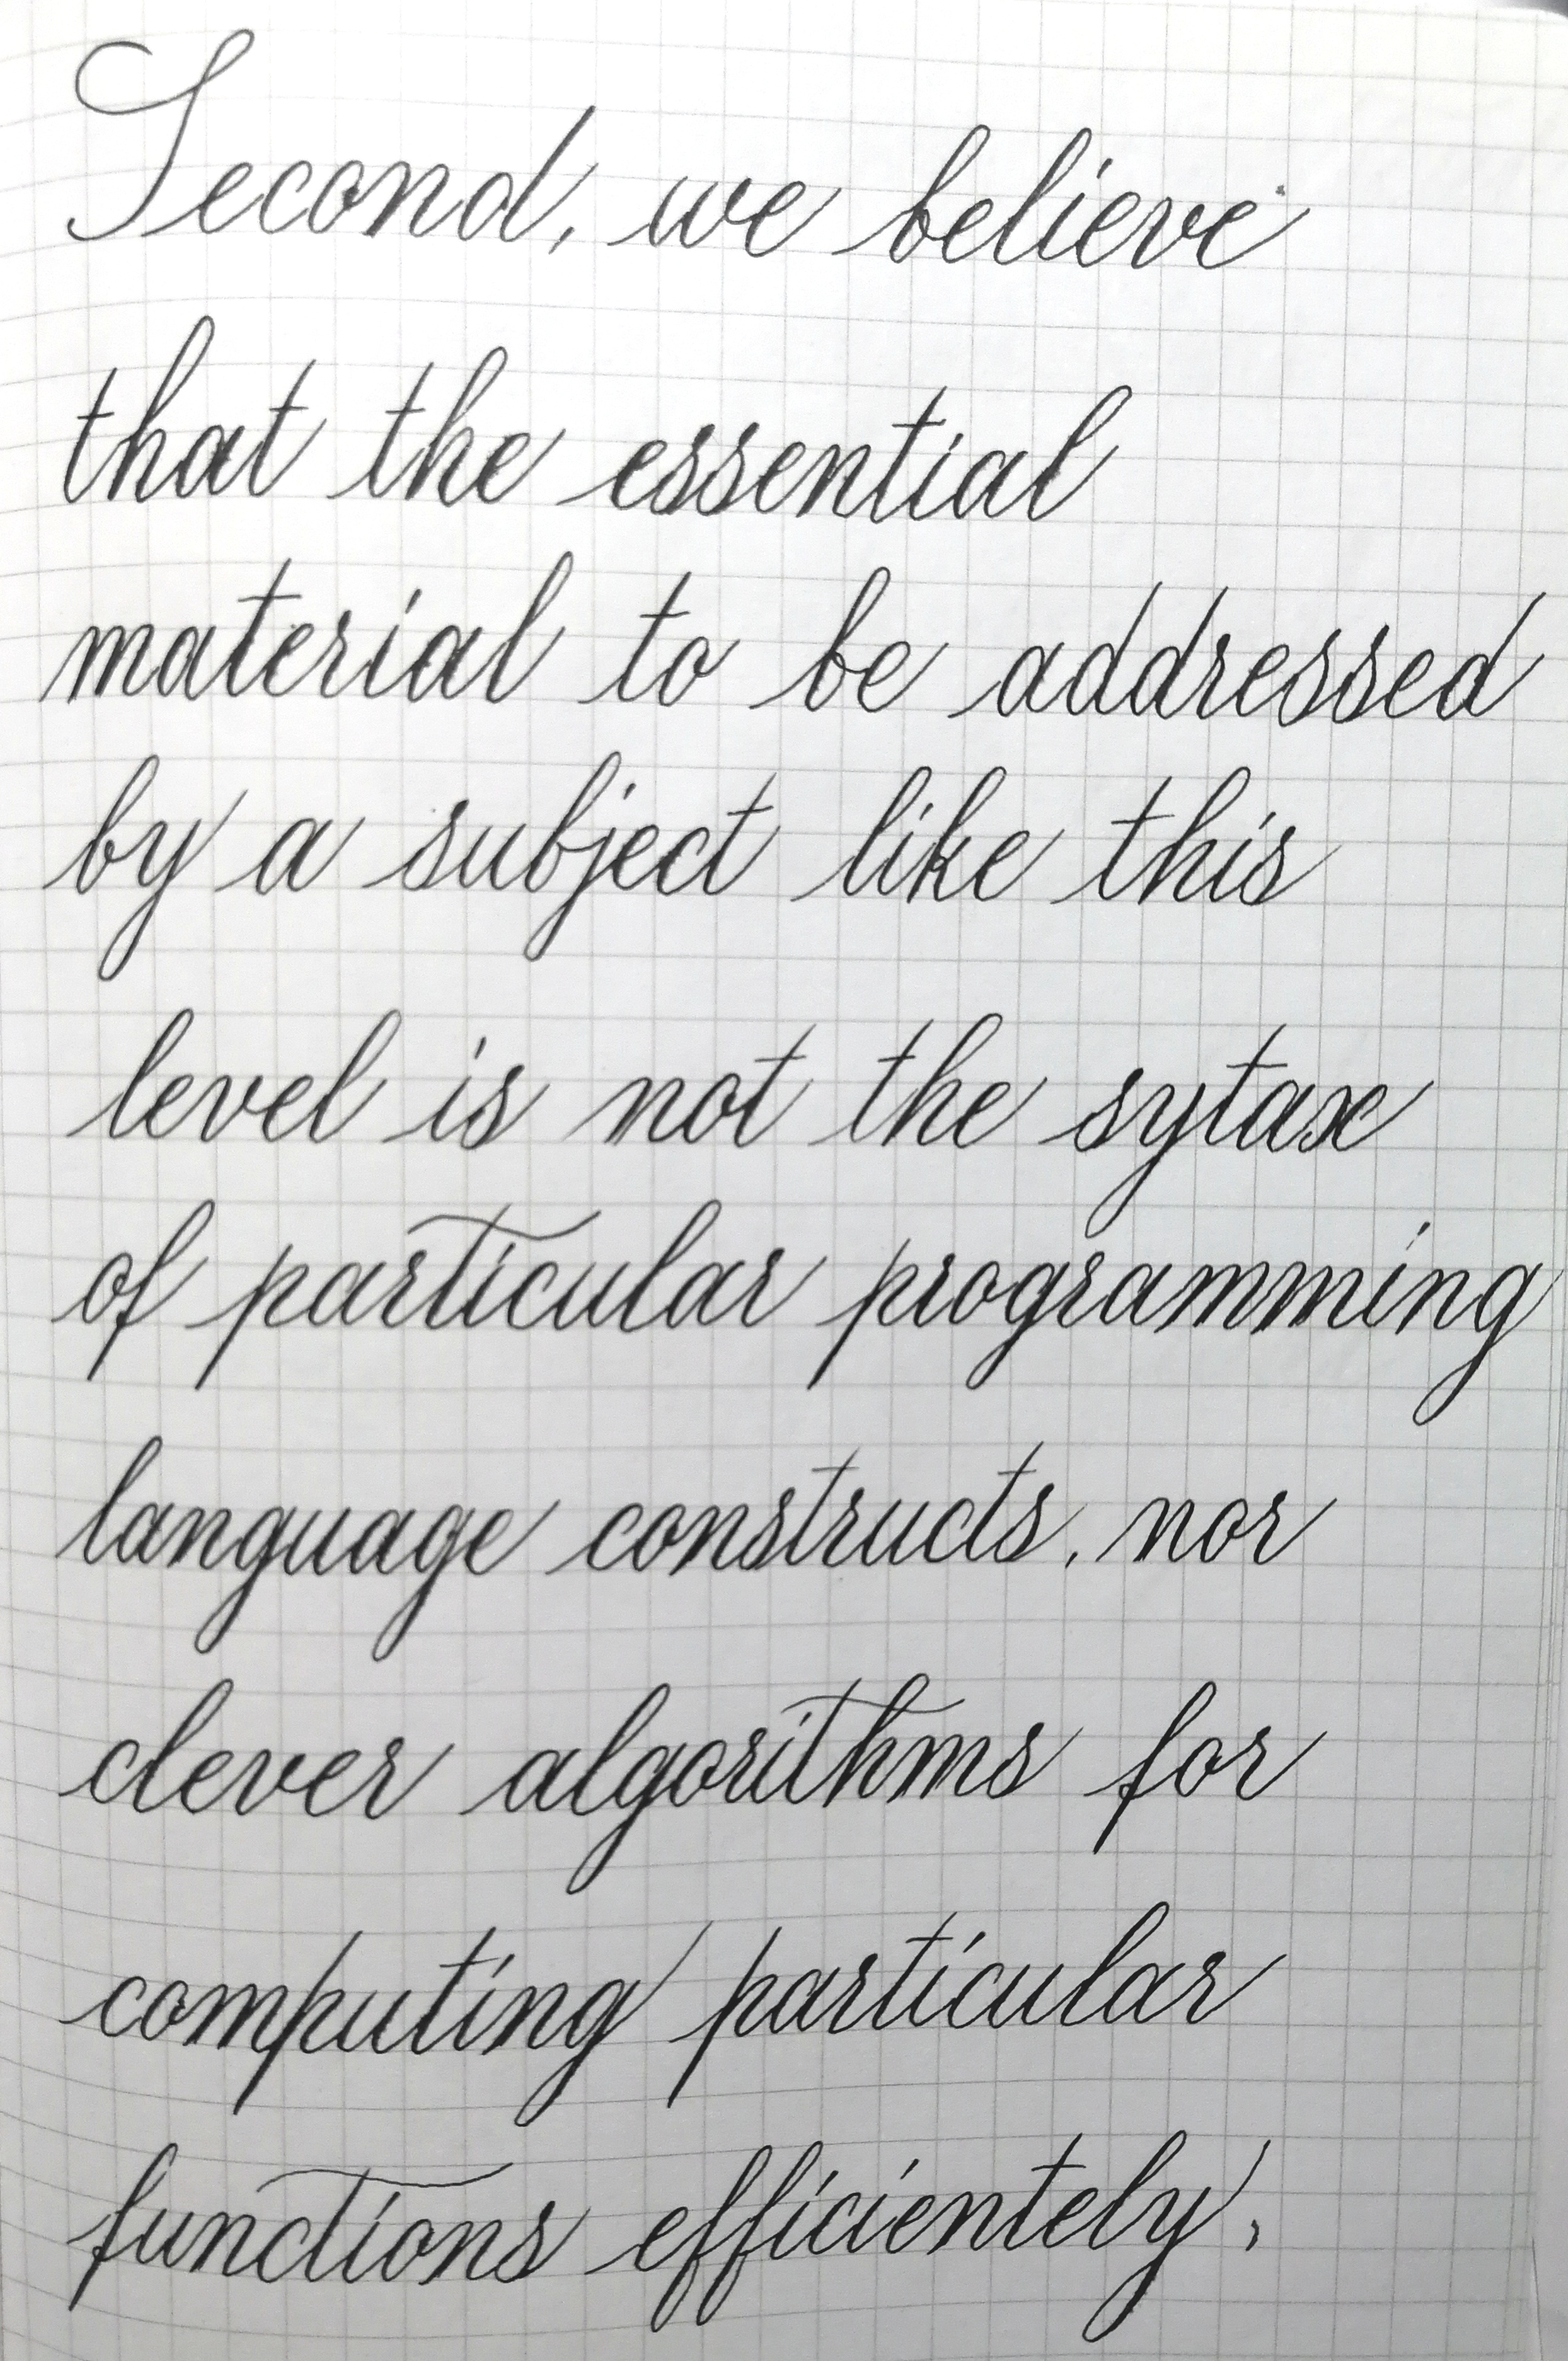 Second, we believe
that the essential
material to be addressed
by a subject like this
level is not the sytax
of particular programming
language constructs, nor
clever algorithms for
computing particular
functions efficientely,